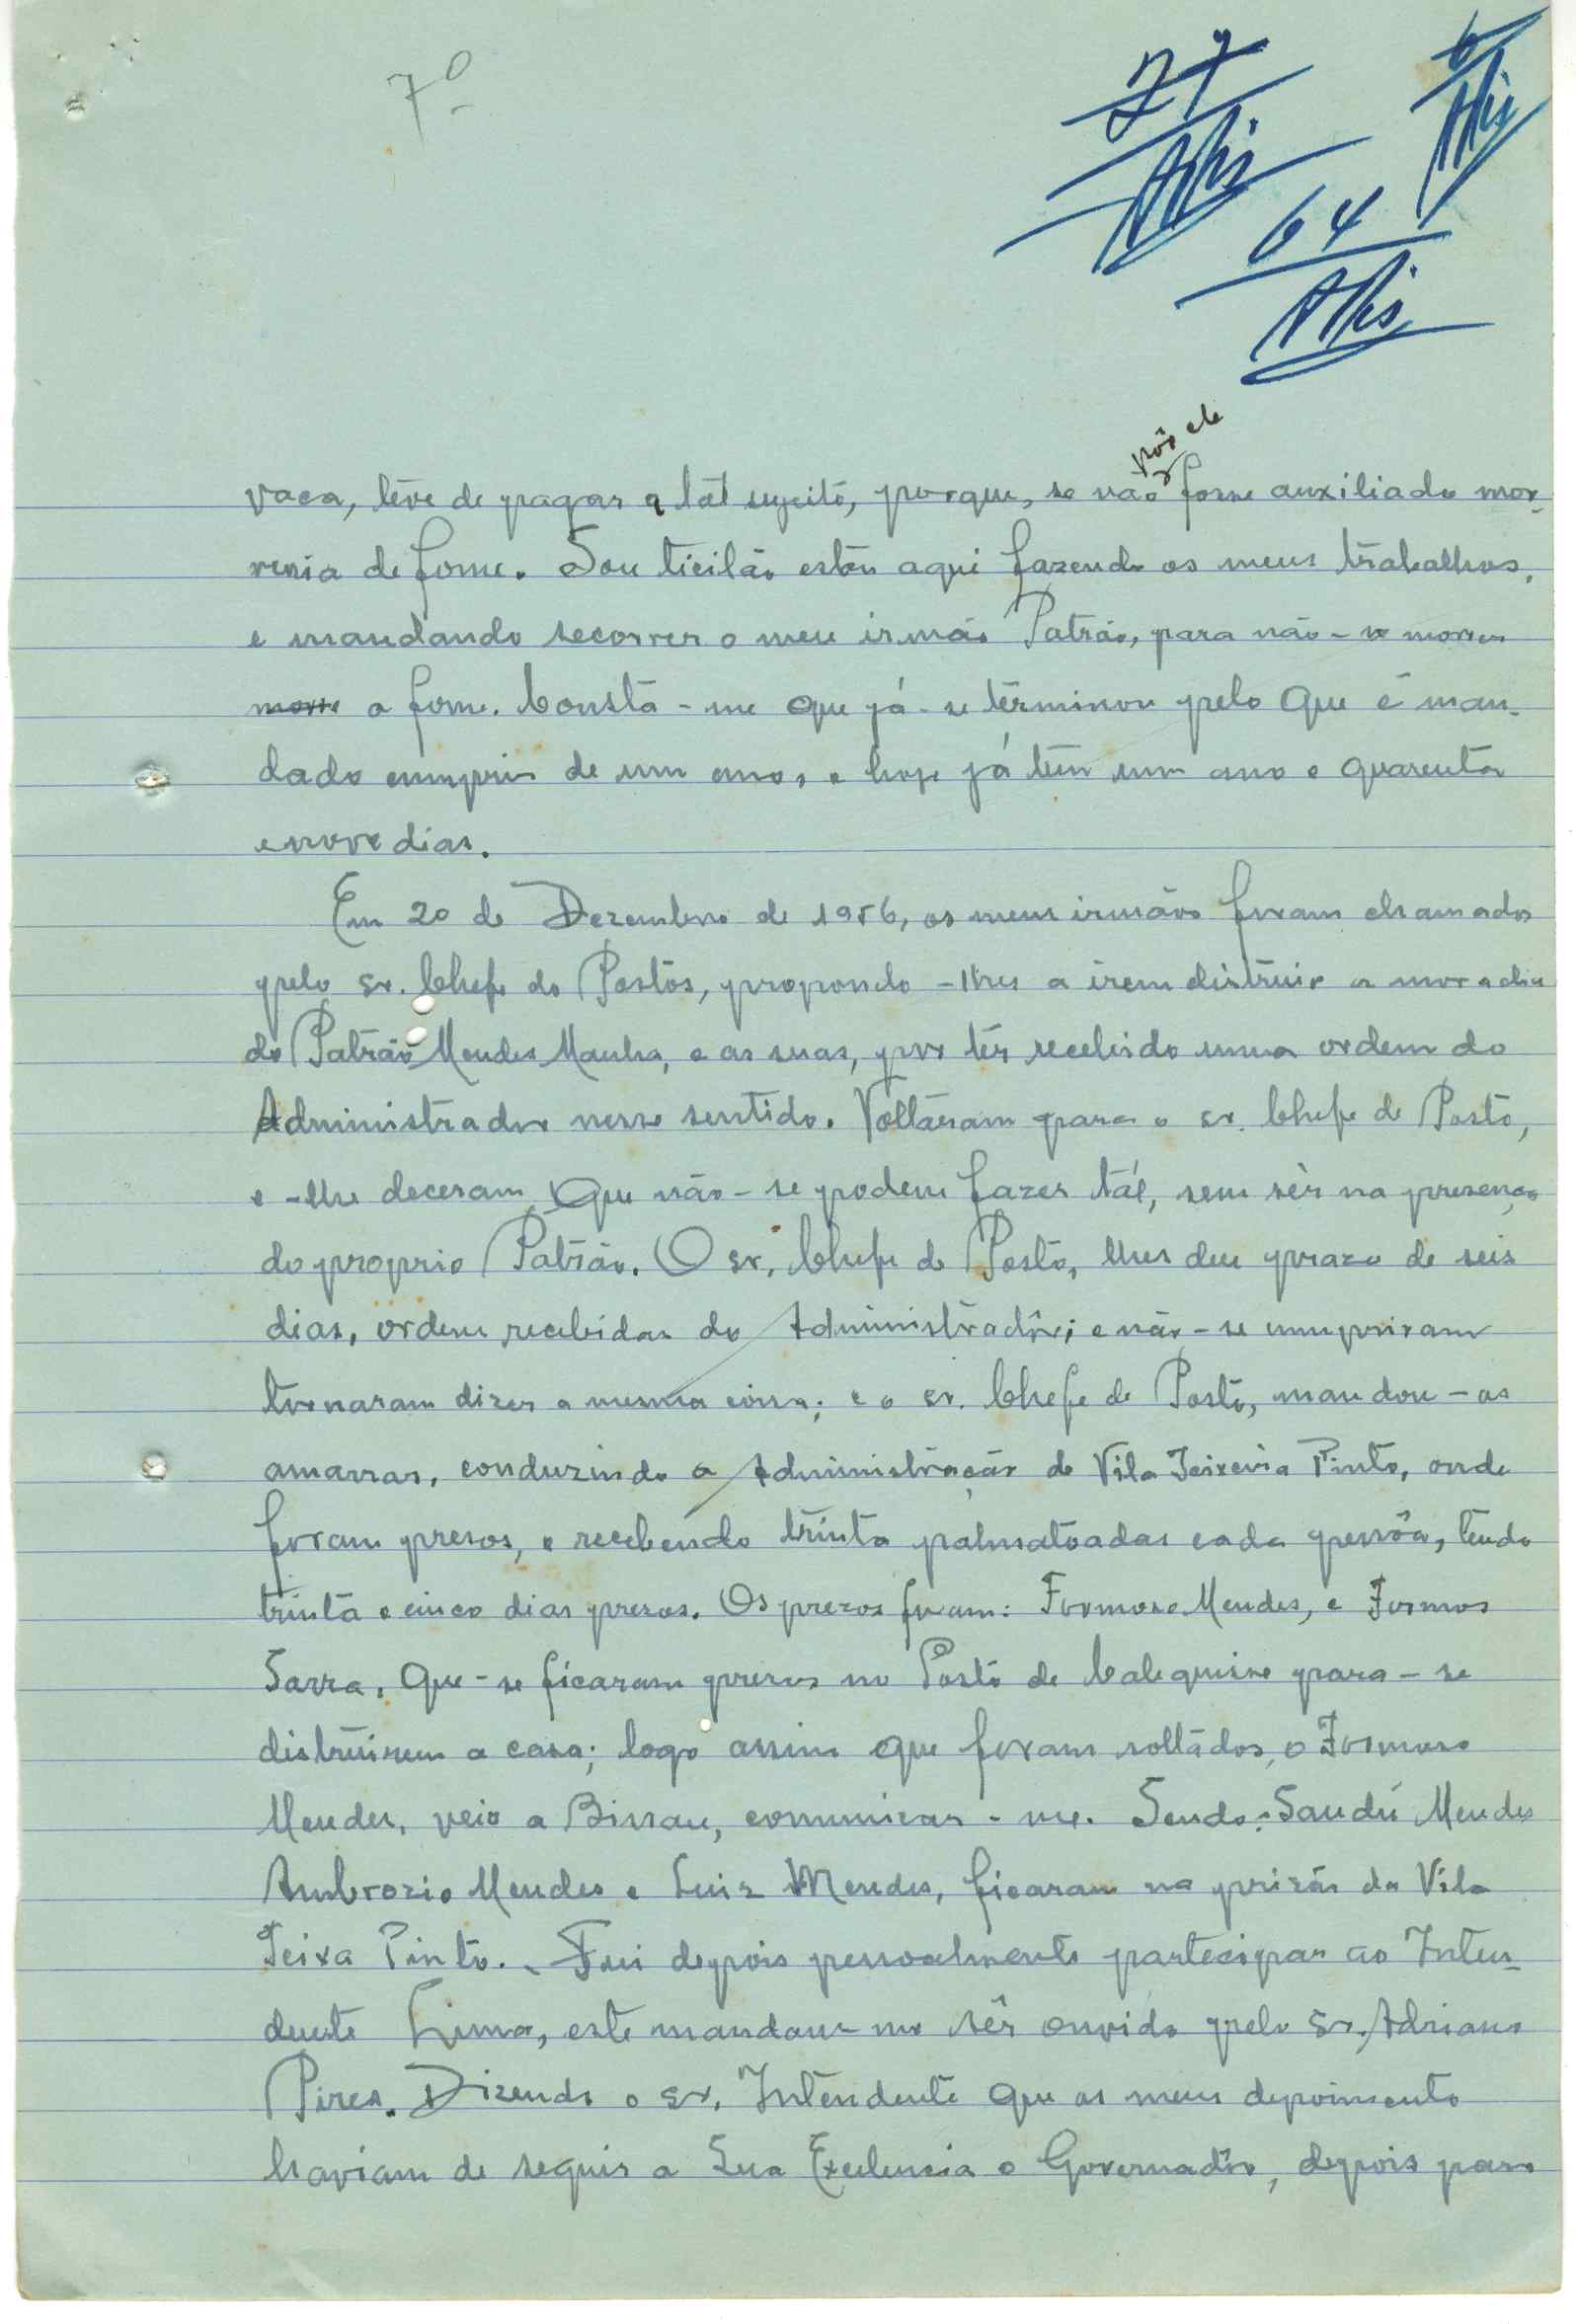 7º
77
6
64
pôr ele
vaca, têve de pagar a tál sugeitó, porque, se não fosse auxiliado mor-
reria de fome. Sou ticilão estou aqui fazendo os meus trabalhos,
e mandando secorrer o meu irmão Patrão, para não-se morrer
morre a fome. Consta-me que já-se terminou pelo que é man-
dado cumprir de um ano, e hoje já tem um ano e quarenta
e nove dias.
Em 20 de Dezembro de 1956, os meus irmãos foram chamados
pelo sr. Chefe do Postos, propondo-lhes a irem distruir a moradia
do Patrão Mendes Manha, e as suas, por têr recebido uma ordem do
Administrador nesse sentido. Voltaram para o sr. Chefe de Posto,
e-lhe deceram que não-se podem fazer tál, sem sêr na presença
do proprio Patrão. O sr. Chefe de Posto, lhes deu prazo de seis
dias, ordem recebidas do Administradôr; e não-se cumpriram
tornaram dizer a mesma coisa; e o sr. Chefe de Posto, mandou-os
amarrar, conduzindo a Administração de Vila Teixeira Pinto, onde
foram presos, e recebendo trinta palmatoadas cada pessôa, tendo
trinta e cinco dias presos. Os prezos foram: Formoso Mendes, e Formos
Sarra, que-se ficaram presos no Posto de Calequisse para-se
distruirem a casa; logo assim que foram soltados, o Formoso
Mendes, veio a Bissau, comunicar-me. Sendo: Saudú Mendes
Ambrozio Mendes e Luiz Mendes, ficaram na prizão da Vila
Teixa Pinto. Fui depois pessoalmente partecipar ao Inten-
dente Lima, este mandou-me sêr ouvido pelo Sr. Adriano
Pires. Dizendo o sr. Intendente que os meus depoimento
haviam de seguir a Sua Excelencia o Governadôr, depois para